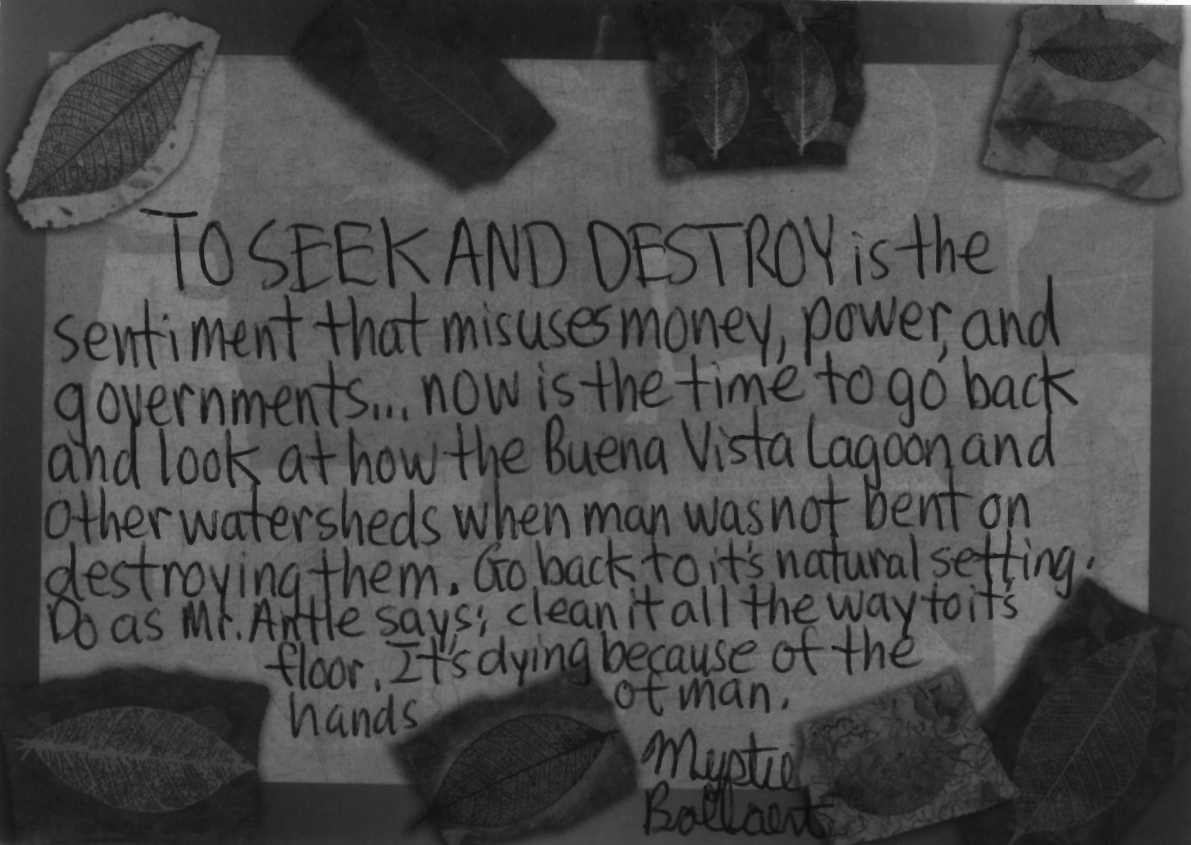 TO SEEK AND DESTROY is the
sentiment that misuses money, power, and
governments... now is the time to go back
and look at how the Buena Vista Lagoon and
other watersheds when man was not bent on
destroying them. Go back to it's natural setting.
Do as Mr. Antle says; clean it all the way to it's
floor. It's dying because of the
hands of man.
Mystie
Bollaert